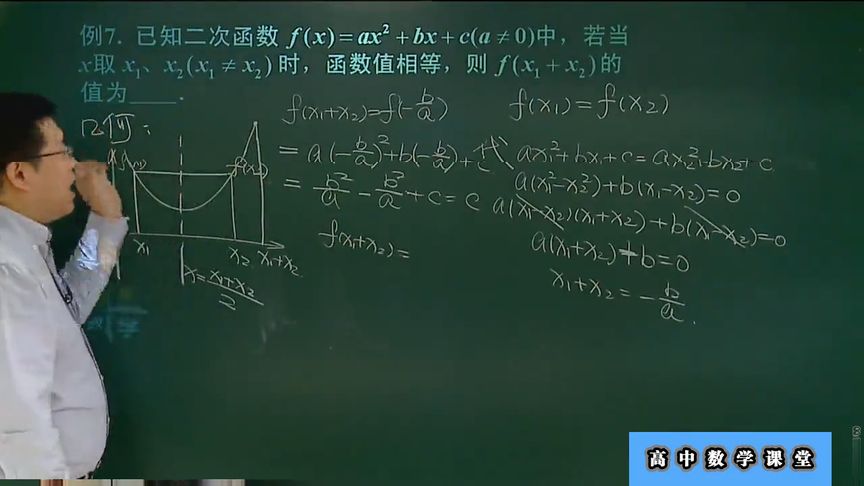 例7. 已知二次函数 f(x)=ax²+bx+c(a≠0)中，若当
x取 x₁、x₂(x₁≠x₂) 时，函数值相等，则 f(x₁+x₂)的
值为____.
几何：
f(x₂)
x₁ x₂ x₁+x₂
x=\frac{x₁+x₂}{2}
f(x₁+x₂)=f(-\frac{b}{a})
= a(-\frac{b}{a})²+b(-\frac{b}{a})+c
= \frac{b²}{a}-\frac{b²}{a}+c=c
f(x₁+x₂)=
f(x₁)=f(x₂)
代 ax₁²+bx₁+c=ax₂²+bx₂+c
a(x₁²-x₂²)+b(x₁-x₂)=0
a(x₁-x₂)(x₁+x₂)+b(x₁-x₂)=0
a(x₁+x₂)+b=0
x₁+x₂=-\frac{b}{a}.
高中数学课堂